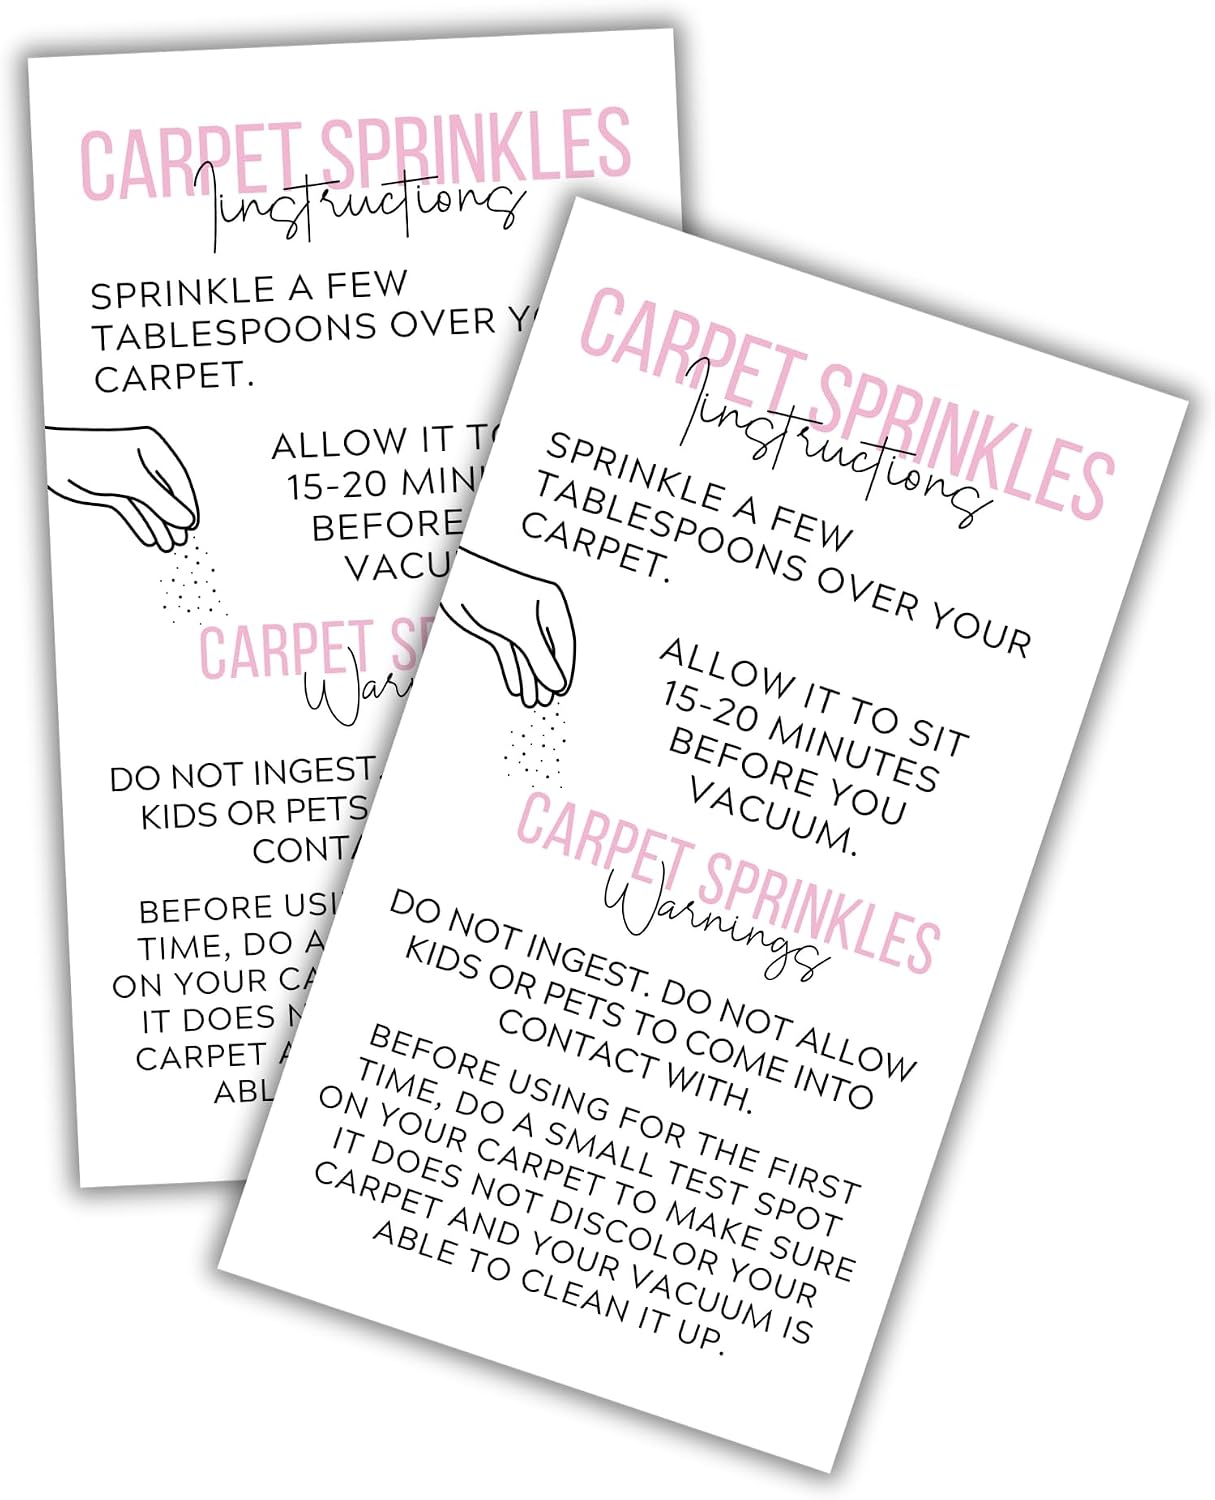 CARPET SPRINKLES
Instructions
SPRINKLE A FEW
TABLESPOONS OVER
CARPET.
ALLOW IT
15-20
BEFORE
CARPET
DO NOT INGEST.
KIDS OR PETS
BEFORE
TIME, DO A
ON YOUR
IT DOES
CARPET
CARPET SPRINKLES
Instructions
SPRINKLE A FEW
TABLESPOONS OVER YOUR
CARPET.
ALLOW IT TO SIT
15-20 MINUTES
BEFORE YOU
VACUUM.
CARPET SPRINKLES
Warnings
DO NOT INGEST. DO NOT ALLOW
KIDS OR PETS TO COME INTO
CONTACT WITH.
BEFORE USING FOR THE FIRST
TIME, DO A SMALL TEST SPOT
ON YOUR CARPET TO MAKE SURE
IT DOES NOT DISCOLOR YOUR
CARPET AND YOUR VACUUM IS
ABLE TO CLEAN IT UP.